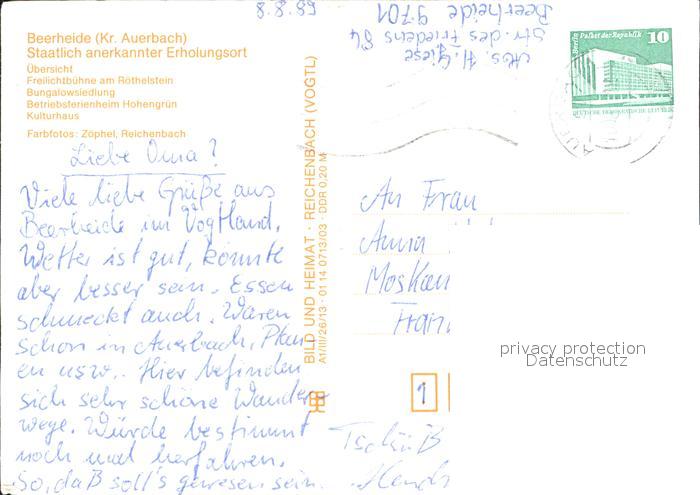 Beerheide (Kr. Auerbach)
Staatlich anerkannter Erholungsort
Übersicht
Freilichtbühne am Röthelstein
Bungalowsiedlung
Betriebsferienheim Hohengrün
Kulturhaus
Farbfotos: Zöphel, Reichenbach
8.8.89
Abs. H. Giese
Str. des Friedens 84
Beerheide 9701
Berlin Palast der Republik
10
DEUTSCHE DEMOKRATISCHE REPUBLIK
Liebe Oma!
Viele liebe Grüße aus
Beerheide im Vogtland.
Wetter ist gut, könnte
aber besser sein. Essen
schmeckt auch. Waren
schon in Auerbach, Plau-
en usw.. Hier befinden
sich sehr schöne Wander-
wege. Würde bestimmt
noch mal herfahren.
So, daß soll's gewesen sein.
Tschüß
BILD UND HEIMAT · REICHENBACH (VOGTL)
A1/III/26/13 · 01 14 0713/03 · DDR 0,20 M
An Frau
Anna
Moskau
1
privacy protection
Datenschutz